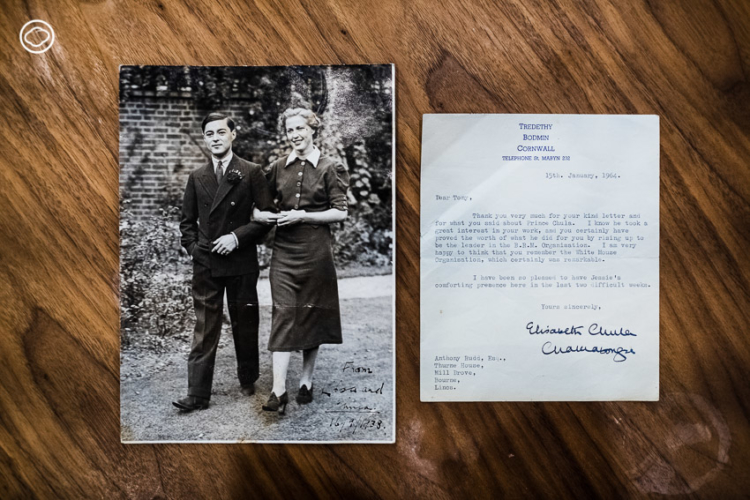 From
Lisba and
Chula.
16/9/38.
TREDETHY
BODMIN
CORNWALL
TELEPHONE ST. MABYN 232
15th. January, 1964.
Dear Tony,
Thank you very much for your kind letter and
for what you said about Prince Chula. I know he took a
great interest in your work, and you certainly have
proved the worth of what he did for you by rising up to
be the leader in the B.R.M. Organisation. I am very
happy to think that you remember the White Mouse
Organisation, which certainly was remarkable.
I have been so pleased to have Jessie's
comforting presence here in the last two difficult weeks.
Yours sincerely,
Elisabeth Chula
Chakrabongse
Anthony Rudd, Esq.,
Thorne House,
Mill Drove,
Bourne,
Lincs.